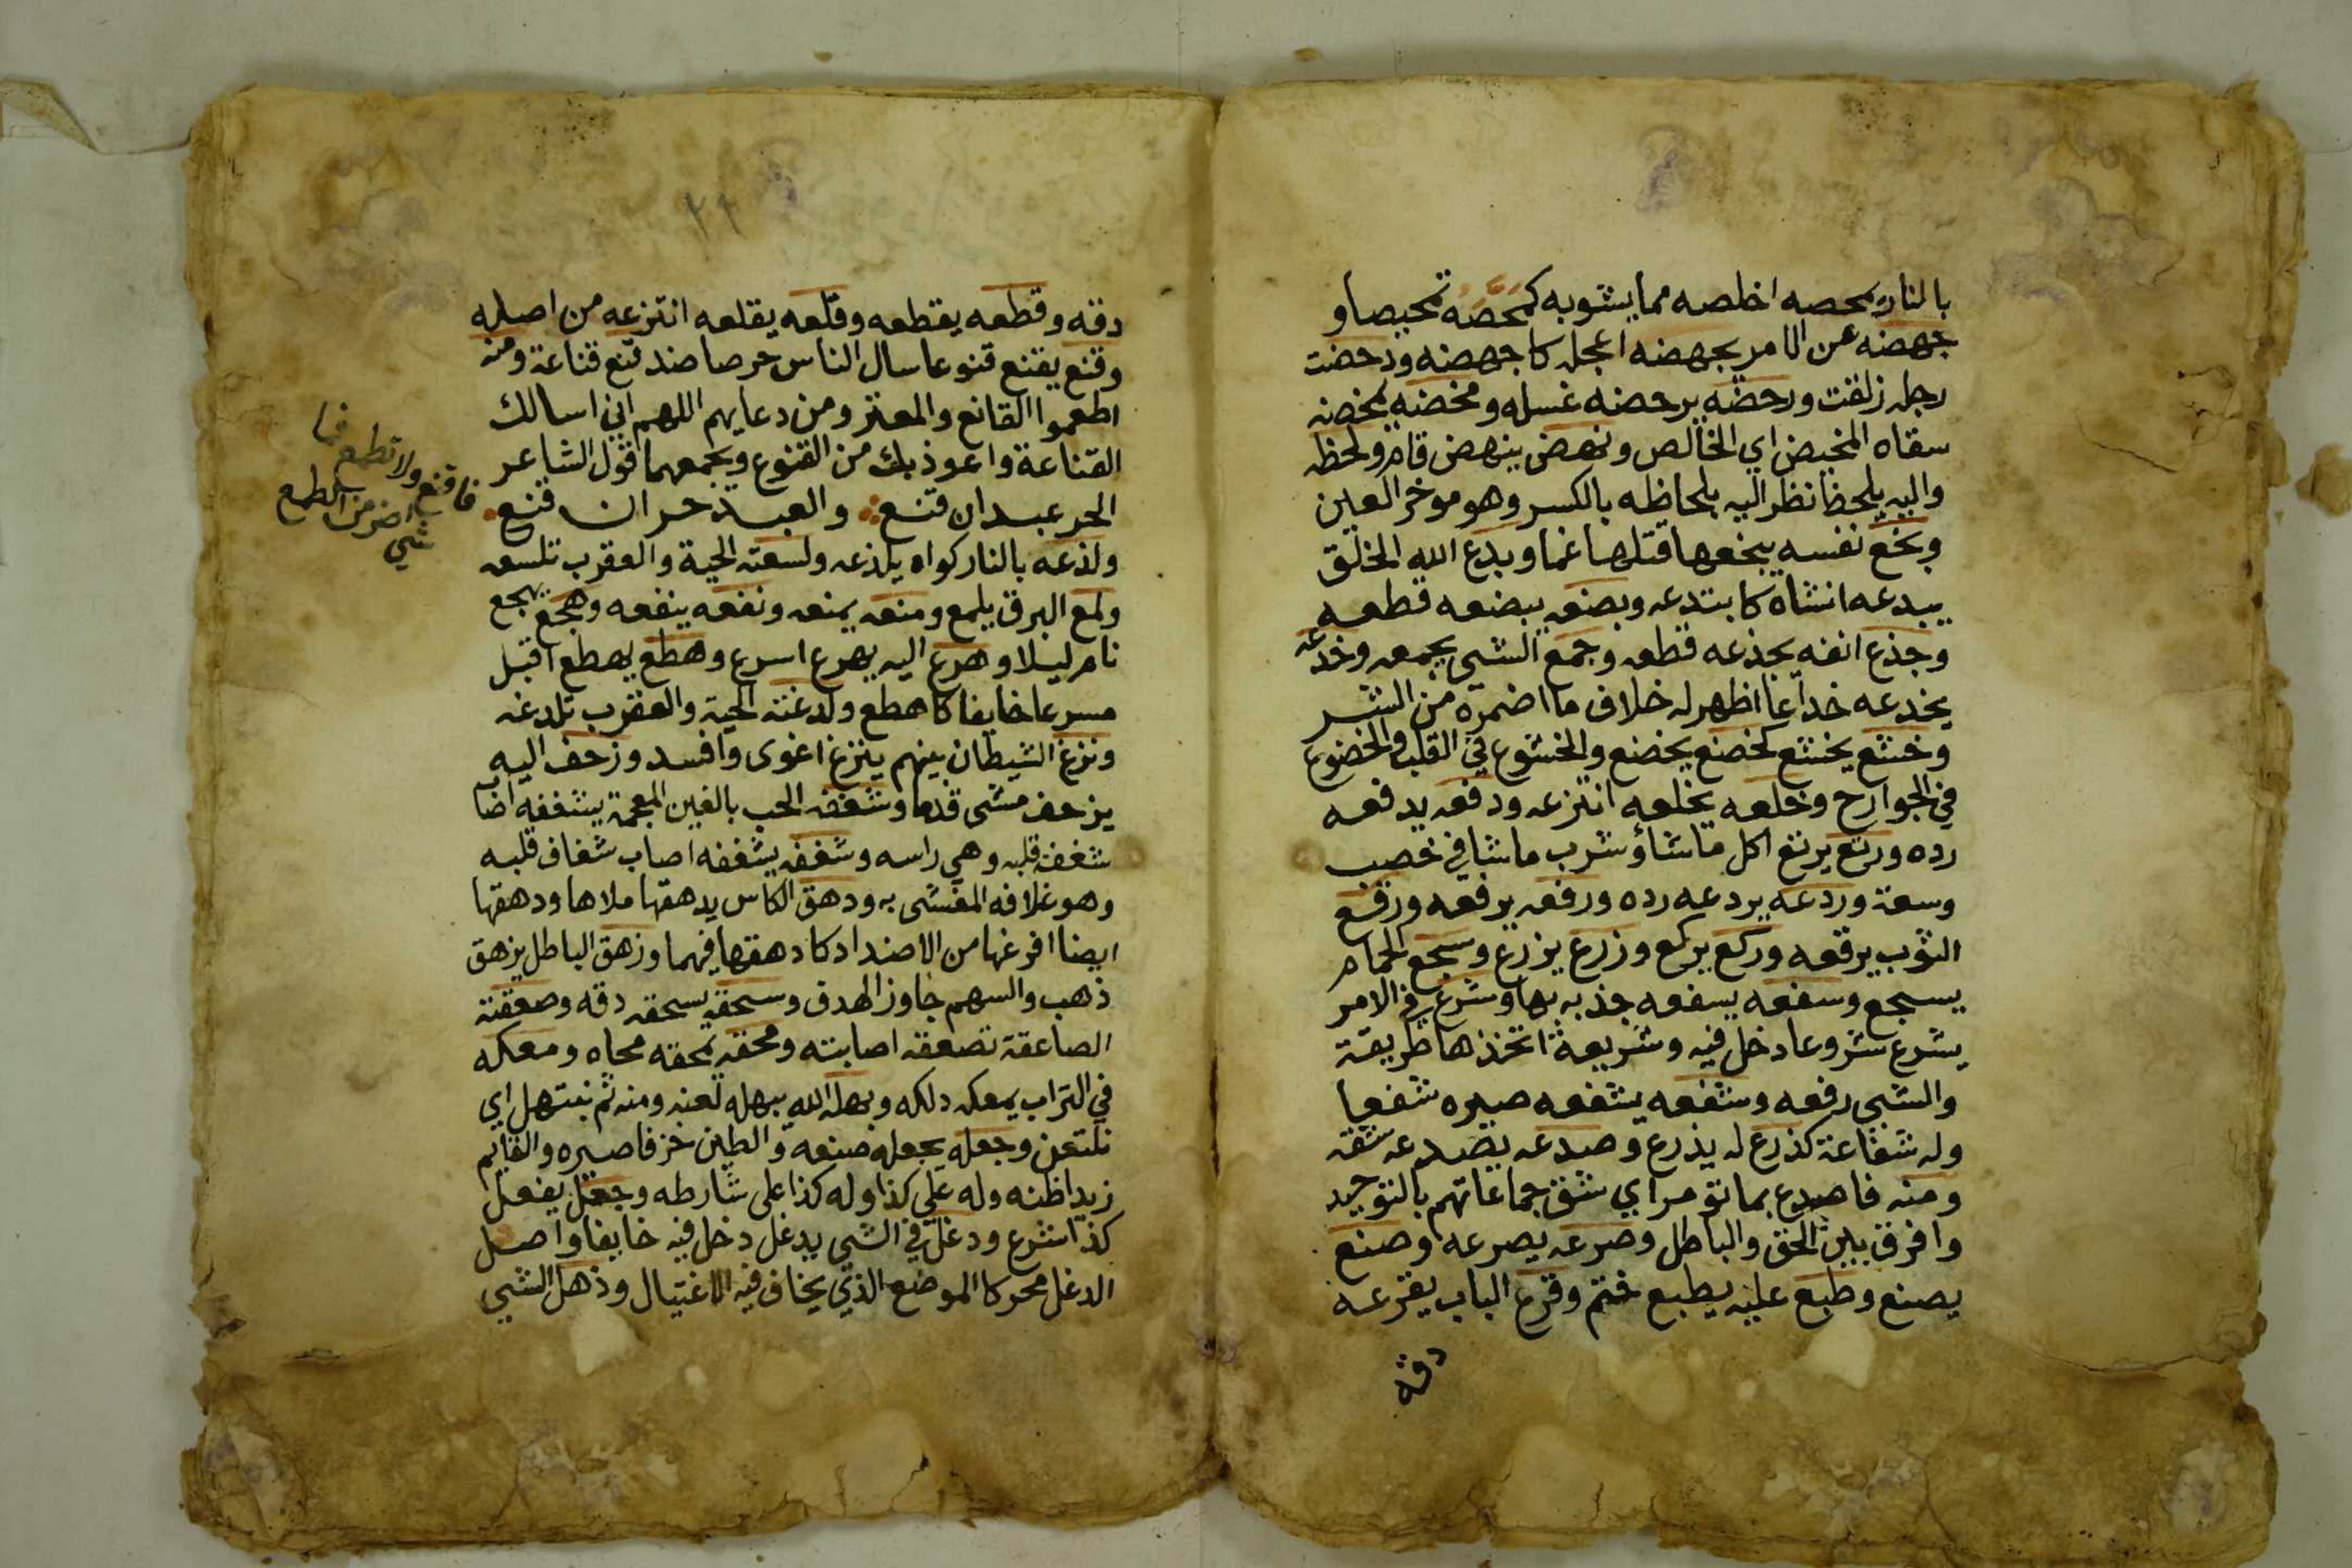 بالنار يمحصه اخلصه مما يشوبه كمَحَّصَهُ تمحيصا و
جهضه عن الامر يجهضه اعجله كاجهضه ودحضت
رجله زلقت ورحضه يرحضه غسله ومخضه يمخضه
سقاه المخيض اي الخالص ونهض ينهض قام ولحظه
واليه يلحظ نظر اليه بلحاظه بالكسر وهو موخر العين
وبخع نفسه يبخعها قتلها غما وبدع الله الخلق
يبدعه انشاه كابتدعه وبضعه يبضعه قطعه
وجذع انفه يجذعه قطعه وجمع الشي يجمعه وخدعه
يخدعه خداعا اظهر له خلاف ما اضمره من الشر
وخشع يخشع كخضع يخضع والخشوع في القلب والخضوع
في الجوارح وخلعه يخلعه انتزعه ودفعه يدفعه
رده ورتع يرتع اكل ما شاؤ شرب ما شا في خصب
وسعة وردعه يردعه رده ورفعه يرفعه ورقع
الثوب يرقعه وركع يركع وزرع يزرع وسجع الحمام
يسجع وسفعه يسفعه جذبه بها وشرع في الامر
يشرع شروعا دخل فيه وشريعة اتخذها طريقة
والشي رفعه وشفعه يشفعه صيره شفعا
وله شفاعة كذرع له يذرع وصدعه يصدعه شقه
ومنه فاصدع بما تومر اي شق جماعاتهم بالتوحيد
وافرق بين الحق والباطل وصرعه يصرعه وصنع
يصنع وطبع عليه يطبع ختم وقرع الباب يقرعه
دقه
٢٢
دقه وقطعه يقطعه وقلعه يقلعه انتزعه من اصله
وقنع يقنع قنوعا سال الناس حرصا ضد قنع قناعة ومنه
اطعموا القانع والمعتر ومن دعايهم اللهم اني اسالك
القناعة واعوذ بك من القنوع ويجمعهما قول الشاعر
الحر عبد ان قنع والعبد حر ان قنع
فاقنع ولا تطمع فما
شي اضر من الطمع
ولذعه بالنار كواه يلذعه ولسعته الحية والعقرب تلسعه
ولمع البرق يلمع ومنعه يمنعه ونفعه ينفعه وهجع يهجع
نام ليلا وهرع اليه يهرع اسرع وهطع يهطع اقبل
مسرعا خايفا كاهطع ولدغته الحية والعقرب تلدغه
ونزغ الشيطان بينهم ينزغ اغوى وافسد وزحف اليه
يزحف مشى قدما وشغفه الحب بالغين المعجمة يشغفه اضا
شغفة قلبه وهي راسه وشغفه يشغفه اصاب شغاف قلبه
وهو غلافه المغشى به ودهق الكاس يدهقها ملاها ودهقها
ايضا افرغها من الاضداد كادهقها فيهما وزهق الباطل يزهق
ذهب والسهم جاوز الهدف وسحقه يسحقه دقه وصعقته
الصاعقة تصعقه اصابته ومحقه يمحقه محاه ومعكه
في التراب يمعكه دلكه وبهله الله يبهله لعنه ومنه ثم نبتهل اي
نلتعن وجعله يجعله صنعه والطين خزفا صيره والقايم
زيدا ظنه وله على كذا وله كذا على شارطه وجعل يفعل
كذا شرع ودغل في الشي يدغل دخل فيه خايفا واصل
الدغل محركا الموضع الذي يخاف فيه الاغتيال وذهل الشي